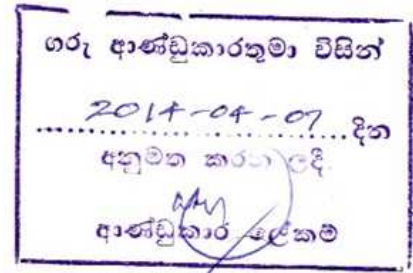 ගරු ආණ්ඩුකාරතුමා විසින්
2014-04-07 දින
අනුමත කරන ලදී.
ආණ්ඩුකාර ලේකම්